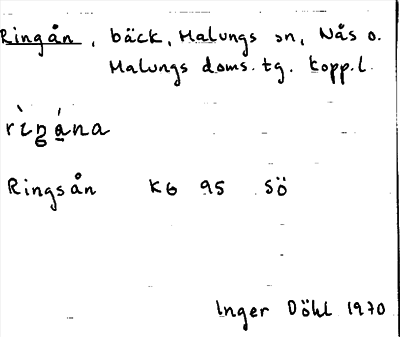 Ringån, bäck, Malungs sn, Nås o.
Malungs doms.tg. Kopp.l.
rìŋána
Ringsån K6 95 SÖ
Inger Döhl 1970